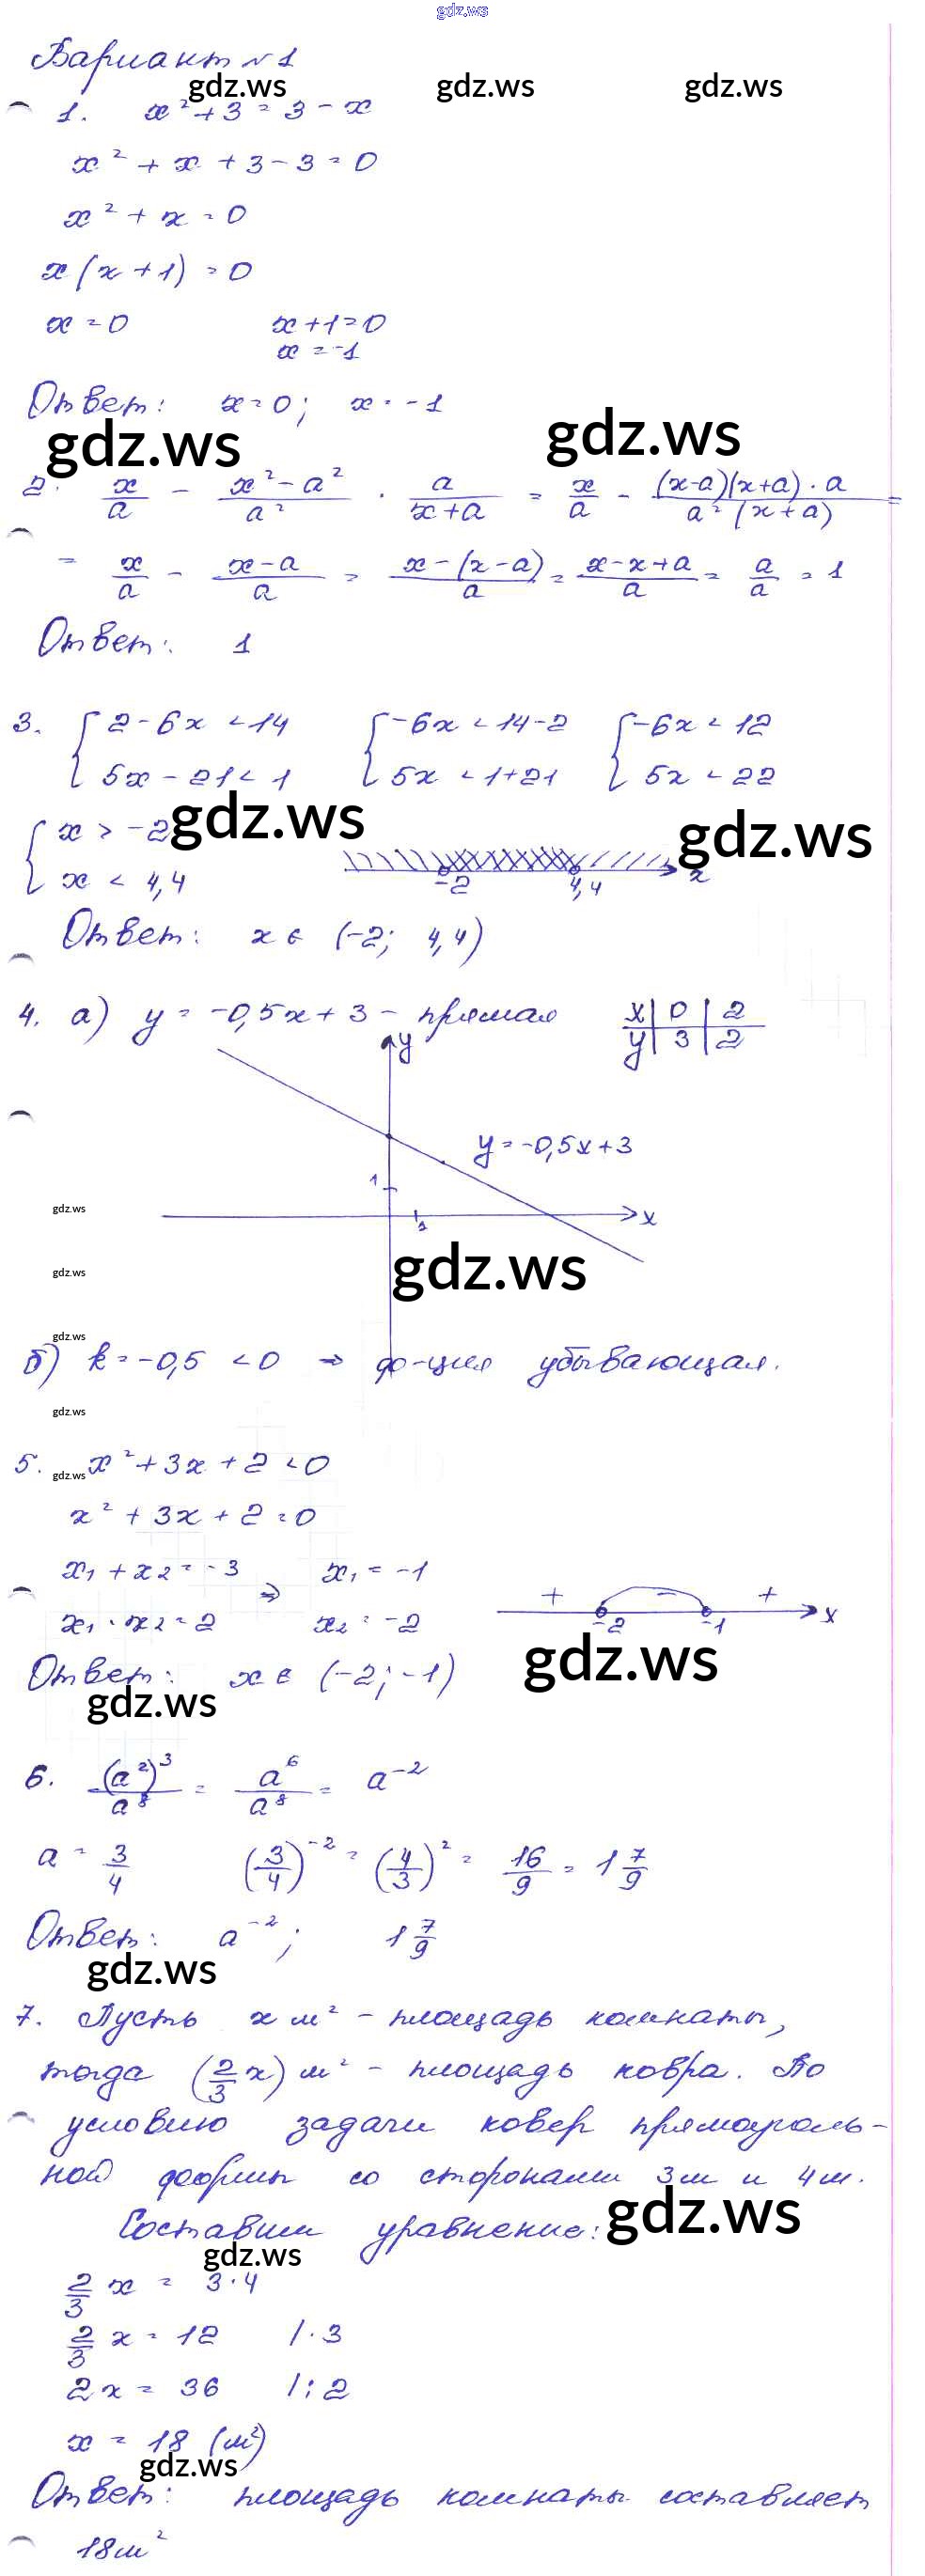 gdz.ws
Вариант №1
gdz.ws gdz.ws gdz.ws
1. x² + 3 = 3 - x
x² + x + 3 - 3 = 0
x² + x = 0
x(x + 1) = 0
x = 0 x + 1 = 0
x = -1
Ответ: x = 0; x = -1
gdz.ws gdz.ws
2. x/a - (x² - a²)/a² · a/(x + a) = x/a - ((x-a)(x+a)·a)/(a²(x+a)) =
= x/a - (x - a)/a = (x - (x - a))/a = (x - x + a)/a = a/a = 1
Ответ: 1
3. { 2 - 6x < 14 { -6x < 14 - 2 { -6x < 12
5x - 21 < 1 5x < 1 + 21 5x < 22
gdz.ws gdz.ws
{ x > -2
x < 4,4
-2 4,4 x
Ответ: x ∈ (-2; 4,4)
4. а) y = -0,5x + 3 - прямая x | 0 | 2
y | 3 | 2
y
y = -0,5x + 3
1
gdz.ws
1 x
gdz.ws
gdz.ws
gdz.ws
б) k = -0,5 < 0 ⇒ ф-ция убывающая.
gdz.ws
5. x² + 3x + 2 < 0
gdz.ws
x² + 3x + 2 = 0
x₁ + x₂ = -3 ⇒ x₁ = -1
x₁ · x₂ = 2 x₂ = -2
+ - +
-2 -1 x
gdz.ws
Ответ: x ∈ (-2; -1)
gdz.ws
6. (a²)³/a⁸ = a⁶/a⁸ = a⁻²
a = 3/4 (3/4)⁻² = (4/3)² = 16/9 = 1 7/9
Ответ: a⁻²; 1 7/9
gdz.ws
7. Пусть x м² - площадь комнаты,
тогда (2/3 x) м² - площадь ковра. По
условию задачи ковер прямоуголь-
ной формы со сторонами 3м и 4м.
Составим уравнение:
gdz.ws
gdz.ws
2/3 x = 3·4
2/3 x = 12 |·3
2x = 36 |:2
x = 18 (м²)
gdz.ws
Ответ: площадь комнаты составляет
18м²